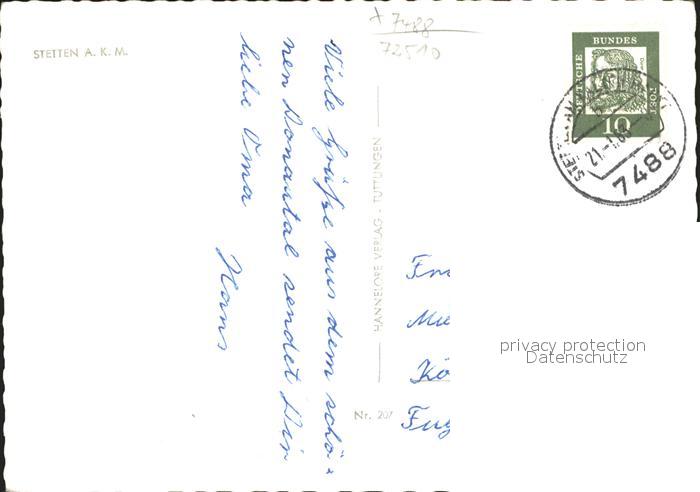 STETTEN A. K. M.
+ 7488
72510
Viele Grüße aus dem schö=
nen Donautal sendet Dir
liebe Oma
Hans
HANNELORE VERLAG - TUTTLINGEN
Nr. 207
DEUTSCHE
BUNDES
POST
10
21.-1.
7488
privacy protection
Datenschutz